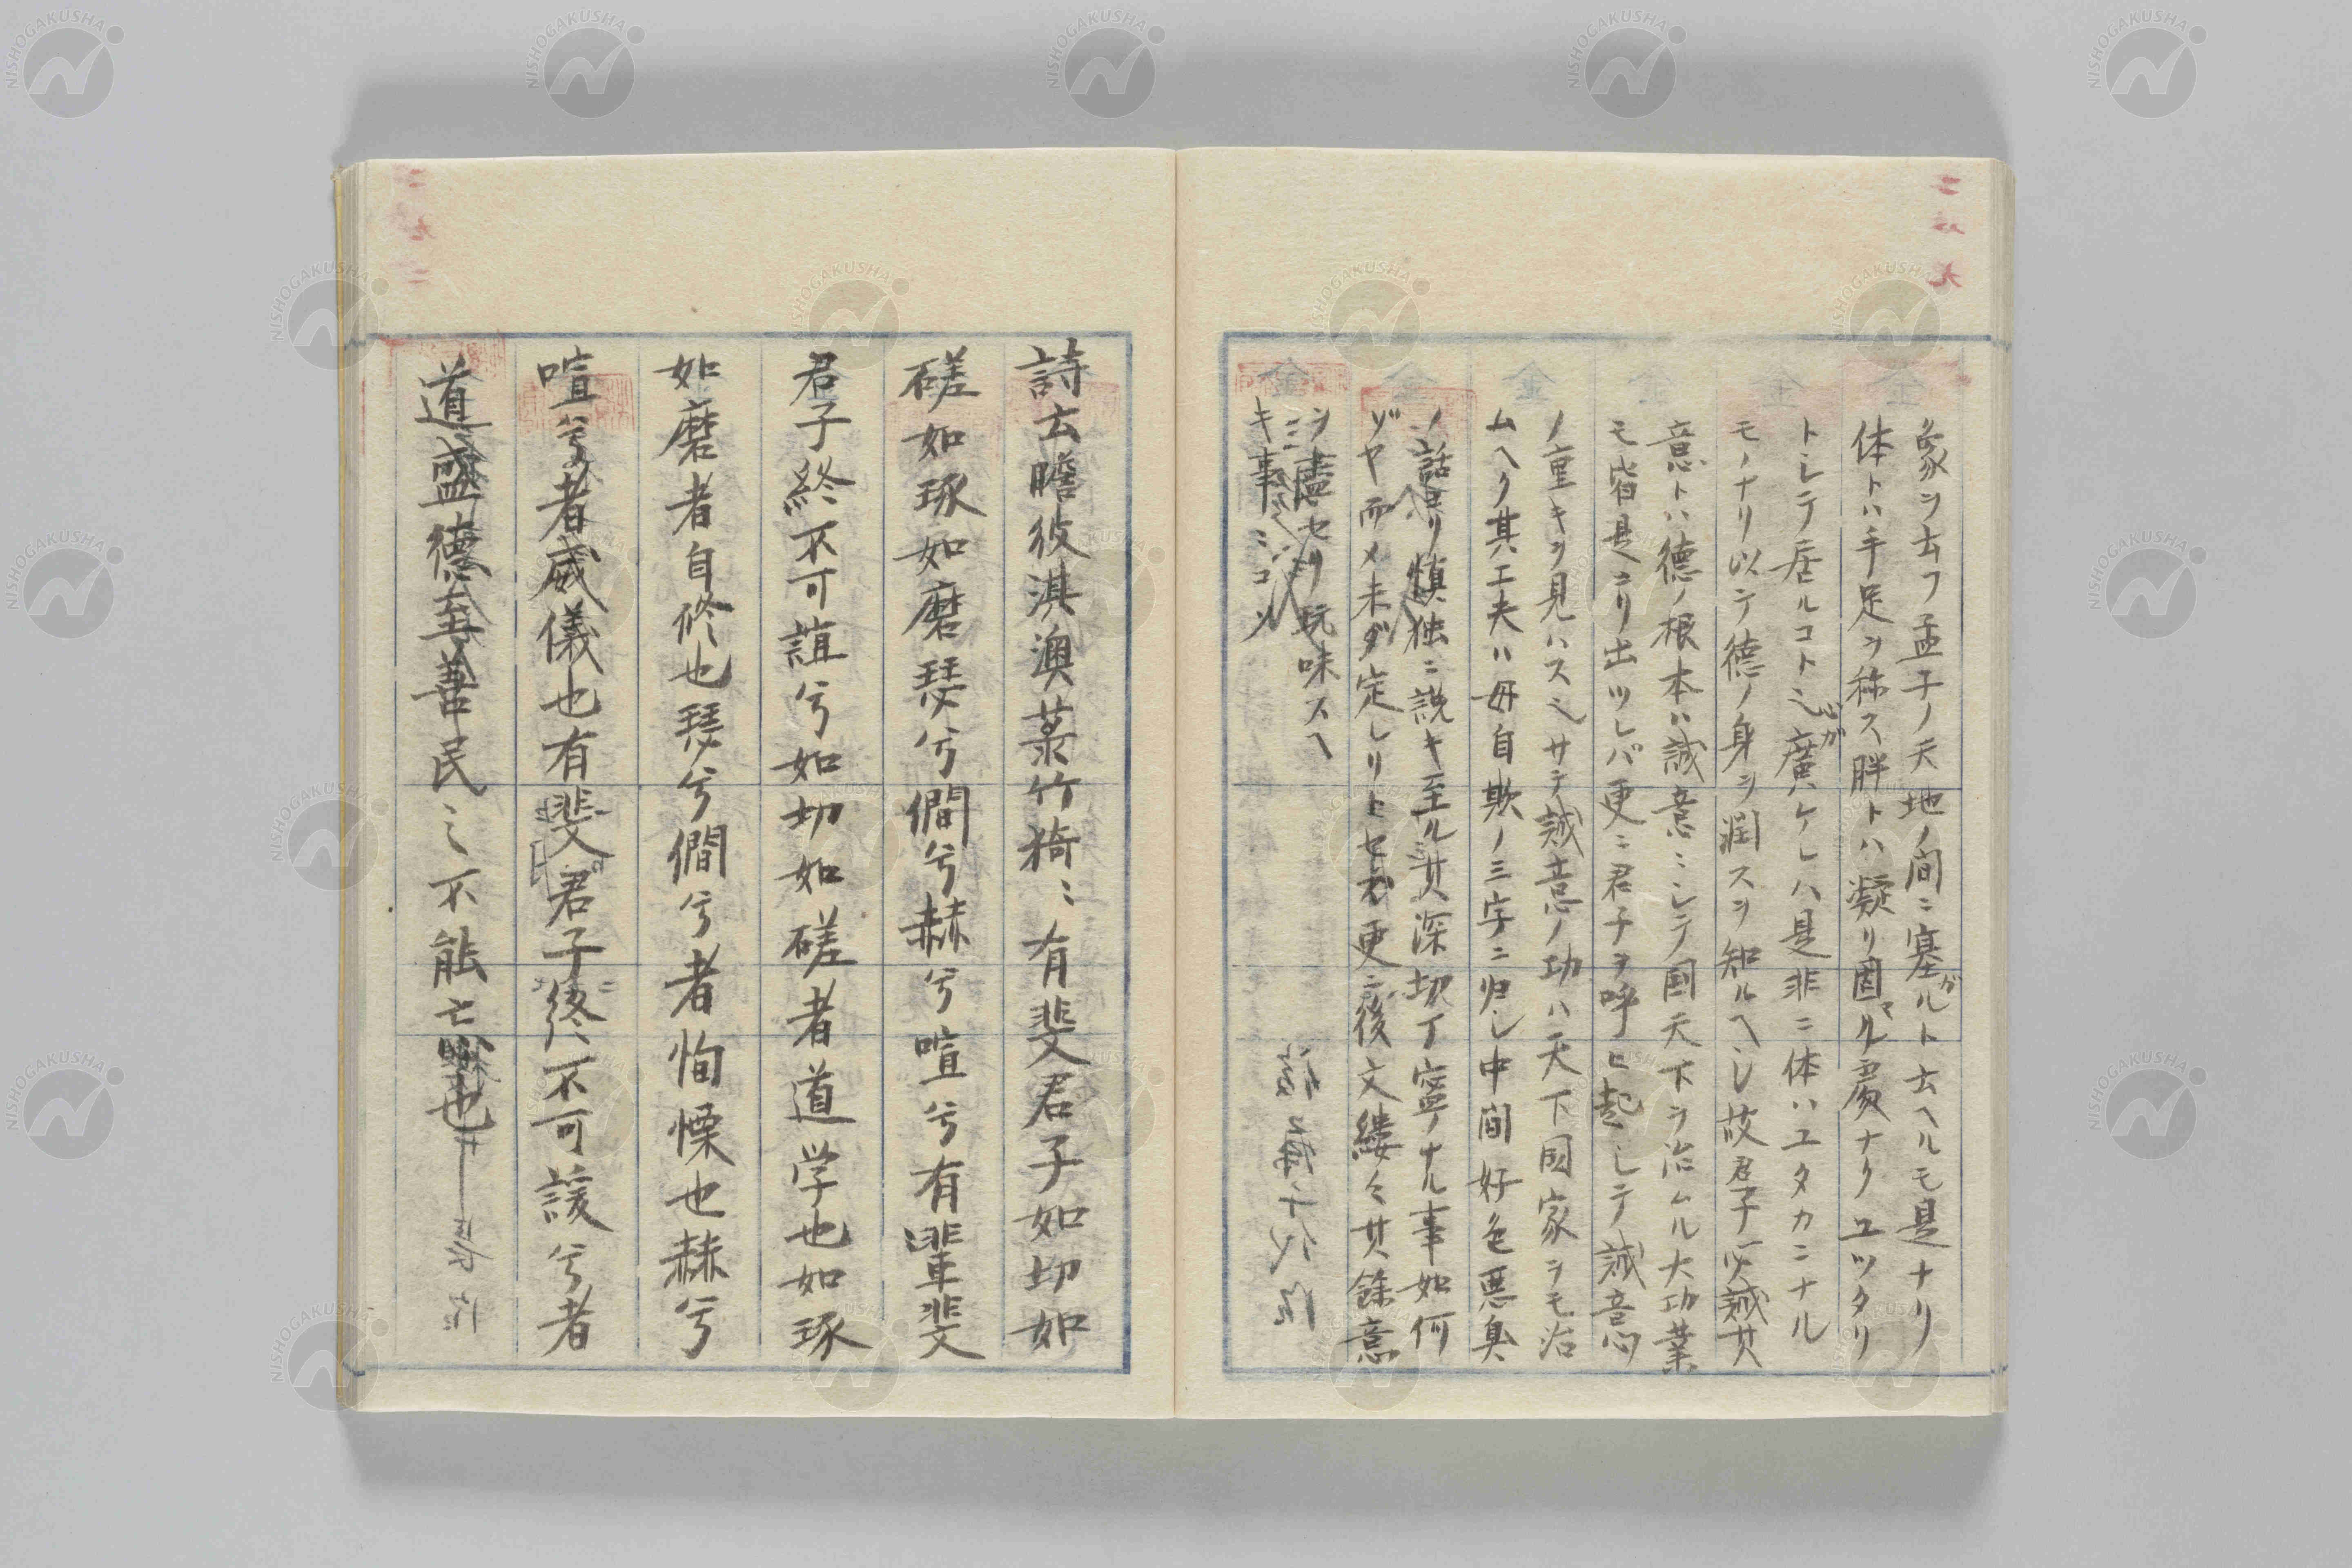 象ヲ云フ孟子ノ天地ノ間ニ塞ガルト云ヘルモ是ナリ
体トハ手足ヲ称ス胖トハ凝リ固マル処ナクユツタリ
トシテ居ルコト心ガ廣ケレハ是非ニ体ハユタカニナル
モノナリ以テ德ノ身ヲ潤スヲ知ルヘシ故君子必誠其
意トハ德ノ根本ハ誠意ニシテ国天下ヲ治ムル大功業
モ皆是ヨリ出ツレバ更ニ君子ヲ呼ヒ起シテ誠意
ノ重キヲ見ハス也サテ誠意ノ功ハ天下国家ヲモ治
ムヘク其工夫ハ毋自欺ノ三字ニ归シ中間好色悪臭
ノ話ヨリ慎独ニ説キ至ル其深切丁寧ナル事如何
ゾヤ而メ未ダ定レリトセズ更ニ後文縷々其餘意
ヲ盡セリ玩味スヘ
キ事ニコソ
詩云瞻彼淇澳菉竹猗ミ有斐君子如切如
磋如琢如磨瑟兮僩兮赫兮喧兮有斐
君子終不可諠兮如切如磋者道学也如琢
如磨者自修也瑟兮僩兮者恂慄也赫兮
喧兮者威儀也有斐君子終不可諼兮者
道盛德至善民之不能亡也
NISHOGAKUSHA